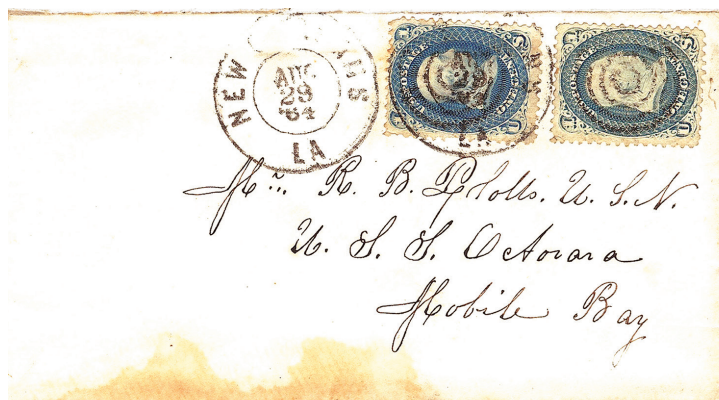 NEW
LA
AUG
29
'64
LA
Mr. R. B. Plotts. U. S. N.
U. S. S. Octorara
Mobile Bay